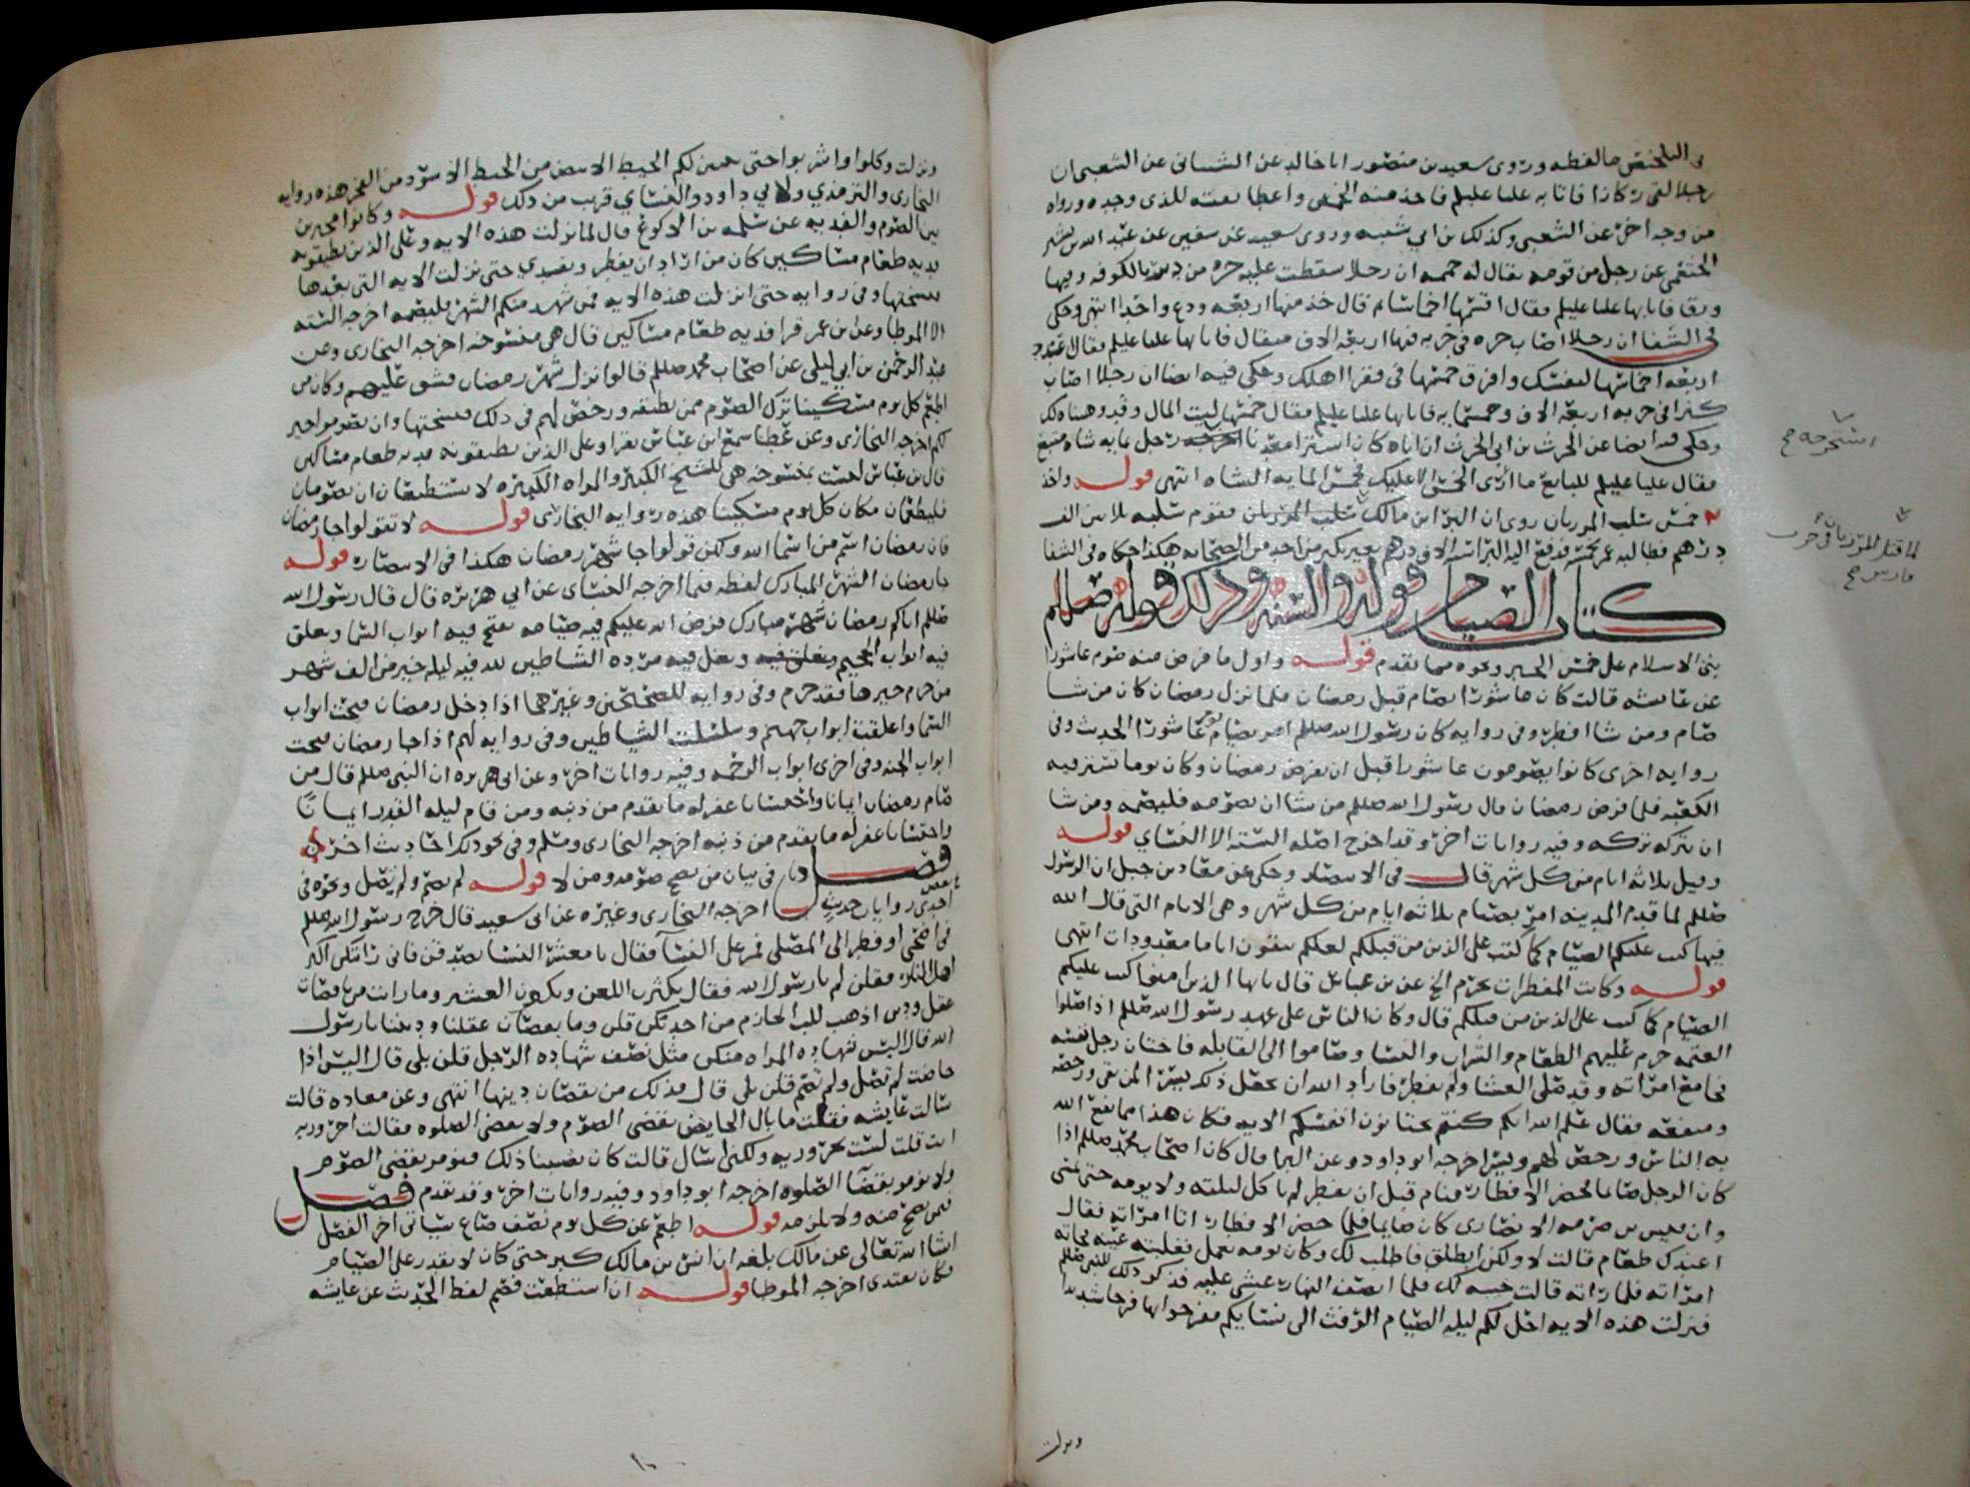 في التلخيص ما لفظه وروى سعيد بن منصور انا خالد عن الشيباني عن الشعبي ان
رجلا التقى ركازا فاتا به عليا عليلم فاخذ منه الخمس واعطا بقيته للذى وجده ورواه
من وجه اخر عن الشعبي وكذلك بن ابي شيبه وروى سعيد عن سفين عن عبد الله بن بشر
الخثعمي عن رجل من قومه يقال له حممه ان رجلا سقطت عليه جره من دير بالكوفه وفيها
ورقا فاتا بها عليا عليلم فقال اقسمها اخماسا ثم قال خذ منها اربعه ودع واحدا انتهى وحكى
في الشفا ان رجلا اصاب جره في خربه فيها اربعه الاف مثقال فاتا بها عليا عليلم فقال
اربعه اخماسها لنفسك وافرق خمسها في فقرا اهلك وحكى فيه ايضا ان رجلا اصاب
كنزا في خربه اربعه الاف وخمسمايه فاتا بها عليا عليلم فقال خمسها لبيت المال وقد وهبناه لك
وحكى فيه ايضا عن الحرث بن ابي الحرث ان اباه كان اشترا معدنا رجل بمايه شاه متبع
استخرجه صح
فقال عليا عليلم للبايع ما أرى الخمس الا عليك فخمس المايه الشاه انتهى قوله واخذ
خمس سلب المرزبان روى ان البرا بن مالك سلب المرزبان فقوم سلبه ثلاثين الف
لما قتل المرزبان في حرب
فارس صح
درهم فطالبه عمر بخمسه فدفع اليه البرا سته الاف درهم بغير نكير من احد من الصحابه هكذا حكاه في الشفا
كتاب الصيام قوله والسنه وذلك قوله صللم
بنى الاسلام على خمس الخبر ونحوه مما تقدم قوله واول ما فرض منه صوم عاشورا
عن عايشه قالت كان عاشورا يصام قبل رمضان فلما نزل رمضان كان من شا
صام ومن شا افطر وفي روايه كان رسول الله صللم امر بصيام يوم عاشورا الحديث وفي
روايه اخرى كانوا يصومون عاشورا قبل ان يفرض رمضان وكان يوما تستر فيه
الكعبه فلما فرض رمضان قال رسول الله صللم من شا ان يصومه فليصمه ومن شا
ان يتركه تركه وفيه روايات اخر وقد اخرج اصله السته الا النسائي قوله
وقيل ثلاثه ايام من كل شهر قال في الانتصار وحكى عن معاذ بن جبل ان الرسول
صللم لما قدم المدينه امر بصيام ثلاثه ايام من كل شهر وهي الايام التي قال الله
فيها كتب عليكم الصيام كما كتب على الذين من قبلكم لعلكم تتقون اياما معدودات انتهى
قوله وكانت المفطرات تحرم الخ عن بن عباس قال يايها الذين امنوا كتب عليكم
الصيام كما كتب على الذين من قبلكم قال وكان الناس على عهد رسول الله صللم اذا صلوا
العتمه حرم عليهم الطعام والشراب والنسا وصاموا الى القابله فاختان رجل نفسه
فجامع امراته وقد صلى العشا ولم يفطر فاراد الله ان يجعل ذلك يسرا لمن بقى ورخصه
ومنفعه فقال علم الله انكم كنتم تختانون انفسكم الايه فكان هذا مما نفع الله
به الناس ورخص لهم ويسر اخرجه ابو داود وعن البرا قال كان اصحاب محمد صللم اذا
كان الرجل صايما فحضر الافطار فنام قبل ان يفطر لم ياكل ليلته ولا يومه حتى يمسي
وان قيس بن صرمه الانصاري كان صايما فلما حضر الافطار اتا امراته فقال
اعندك طعام قالت لا ولكن انطلق فاطلب لك وكان يومه يعمل فغلبته عينه فجاته
امراته فلما راته قالت خيبه لك فلما انتصف النهار غشي عليه فذكر ذلك للنبي صللم
فنزلت هذه الايه احل لكم ليله الصيام الرفث الى نسائكم ففرحوا بها فرحا شديدا
ونزلت
ونزلت وكلوا واشربوا حتى يتبين لكم الخيط الابيض من الخيط الاسود من الفجر هذه روايه
البخارى والترمذي ولابي داود والنسائي قريب من ذلك قوله وكانوا مخيرين
بين الصوم والفديه عن سلمه بن الاكوع قال لما نزلت هذه الايه وعلى الذين يطيقونه
فديه طعام مساكين كان من اراد ان يفطر ويفتدي حتى نزلت الايه التي بعدها
فنسختها وفي روايه حتى انزلت هذه الايه فمن شهد منكم الشهر فليصمه اخرجه السته
الا الموطا وعن بن عمر قرا فديه طعام مساكين قال هي منسوخه اخرجه البخارى وعن
عبد الرحمن بن ابي ليلى عن اصحاب محمد صللم قالوا نزل شهر رمضان فشق عليهم وكان من
اطعم كل يوم مسكينا ترك الصوم ممن يطيقه ورخص لهم في ذلك فنسختها وان تصوموا خير
لكم اخرجه البخارى وعن عطا سمع ابن عباس يقرا وعلى الذين يطيقونه فديه طعام مساكين
قال بن عباس ليست بمنسوخه هي للشيخ الكبير والمراه الكبيره لا يستطيعان ان يصومان
فليطعمان مكان كل يوم مسكينا هذه روايه البخارى قوله لا تقولوا جا رمضان
فان رمضان اسم من اسما الله ولكن قولوا جا شهر رمضان هكذا في الانتصار قوله
جا رمضان الشهر المبارك لفظه فيما اخرجه النسائى عن ابي هريره قال قال رسول الله
صللم اتاكم رمضان شهر مبارك فرض الله عليكم فيه صيامه تفتح فيه ابواب السما وتغلق
فيه ابواب الجحيم وتغل فيه مرده الشياطين لله فيه ليله خير من الف شهر
من حرم خيرها فقد حرم وفي روايه للصحيحين وغيرهما اذا دخل رمضان فتحت ابواب
السما واغلقت ابواب جهنم وسلسلت الشياطين وفي روايه لهم اذا جا رمضان فتحت
ابواب الجنه وفي اخرى ابواب الرحمه وفيه روايات اخر وعن ابي هريره ان النبي صللم قال من
صام رمضان ايمانا واحتسابا غفر له ما تقدم من ذنبه ومن قام ليله القدر ايمانا
واحتسابا غفر له ما تقدم من ذنبه اخرجه البخارى ومسلم وفي نحو ذلك احاديث اخر
فصل في بيان من يصح صومه ومن لا قوله لم تصم ولم تصل ونحوه في
احدى روايات حديث اخرجه البخارى وغيره عن ابي سعيد قال خرج رسول الله صللم
في اضحى او فطر الى المصلى فمر على النسا فقال يا معشر النسا تصدقن فاني رايتكن اكثر
اهل النار فقلن لم يا رسول الله فقال تكثرن اللعن وتكفرن العشير وما رايت من ناقصات
عقل ودين اذهب للب الحازم من احدكن قلن وما نقصان عقلنا وديننا يا رسول
الله قال اليس شهاده المراه منكن مثل نصف شهاده الرجل قلن بلى قال اليس اذا
حاضت لم تصل ولم تصم قلن بلى قال فذلك من نقصان دينها انتهى وعن معاذه قالت
سالت عايشه فقلت ما بال الحايض تقضى الصوم ولا تقضى الصلوه فقالت احروريه
انت قلت لست بحروريه ولكني اسال قالت كان يصيبنا ذلك فنومر بقضى الصوم
ولا نومر بقضا الصلوه اخرجه ابو داود وفيه روايات اخر وقد تقدم فصل
فيمن يصح منه ولا يلزمه قوله اطعم عن كل يوم نصف صاع سياتي اخر الفصل
ان شا الله تعالى عن مالك بلغه ان انس بن مالك كبر حتى كان لا يقدر على الصيام
فكان يفتدى اخرجه الموطا قوله ان استطعت فصم لفظ الحديث عن عايشه